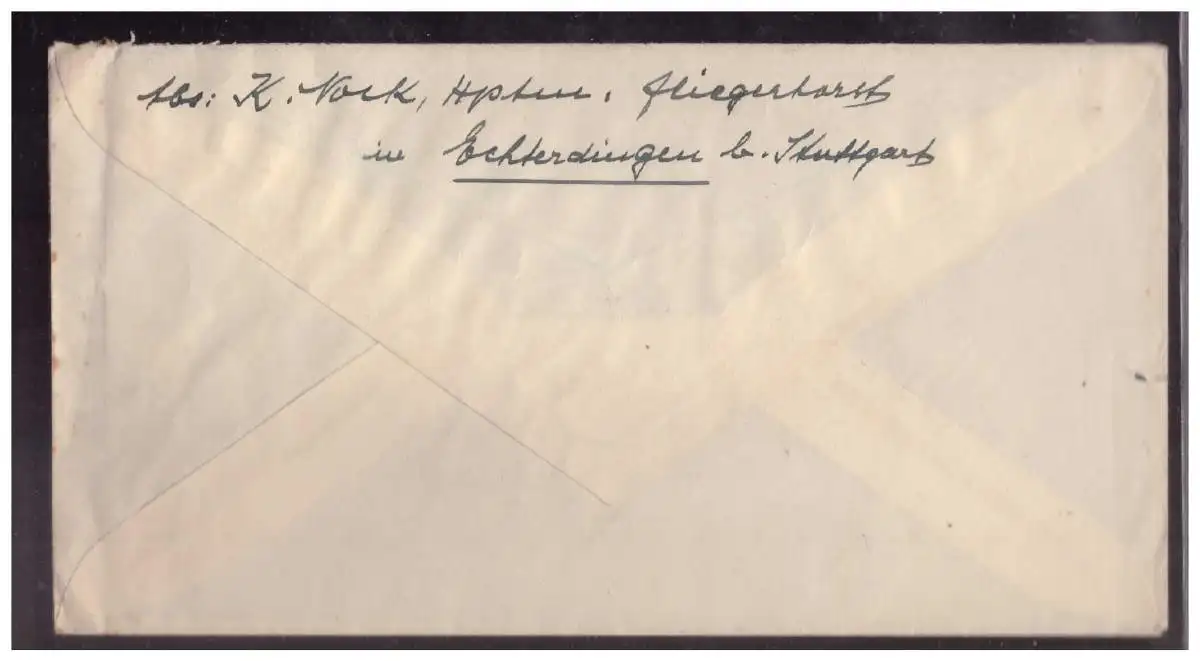 Abs: K. Nock, Hptm. Fliegerhorst
in Echterdingen b. Stuttgart